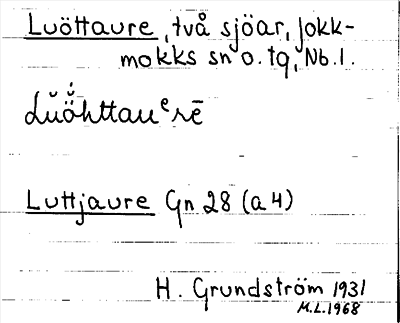 Luöttaure, två sjöar, Jokk-
mokks sn o. tg, Nb. l.
Lŭö̆httauᵉrē
Luttjaure Gn 28 (a 4)
H. Grundström 1931
M.L. 1968